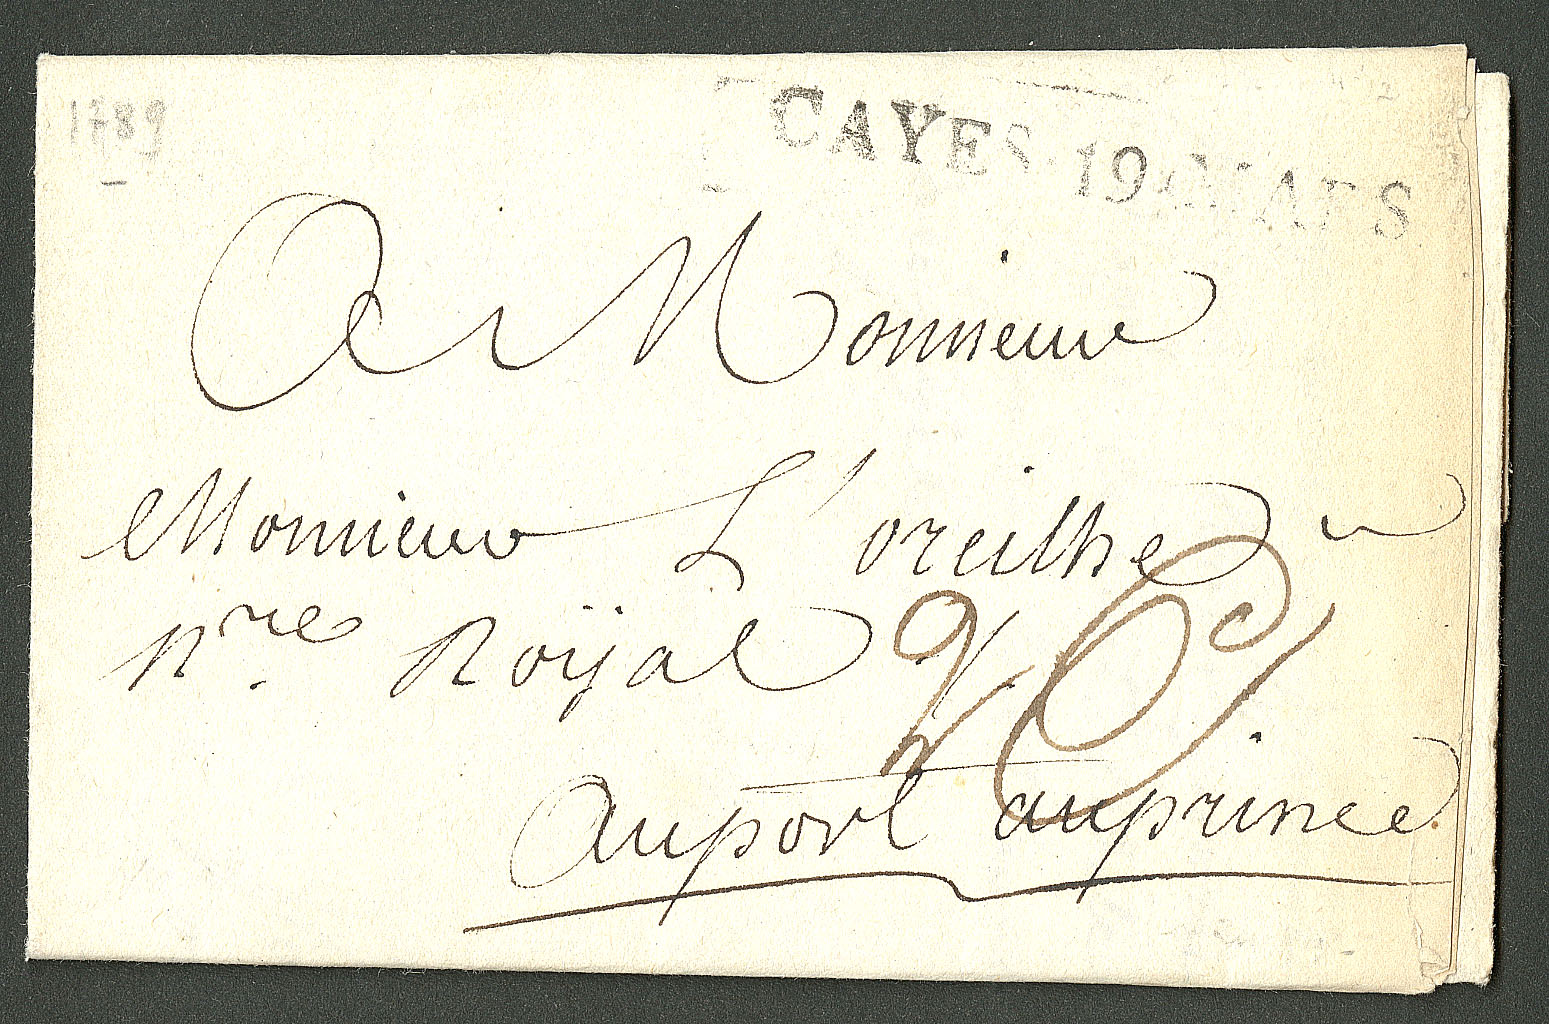 1789
CAYES 19 MARS
A Monsieur
Monsieur L'oreilhe
nre Royal
Auport auprince